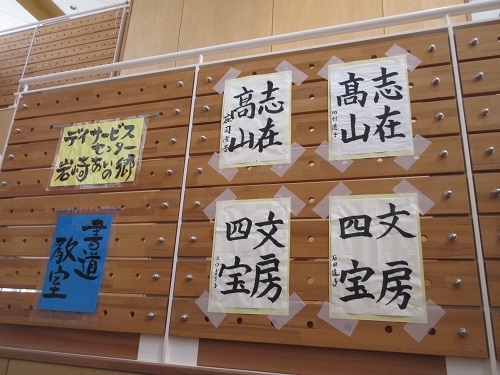 デイサービス
センター
岩崎あいの郷
書道
教室
志在
高山
志在
高山
文房
四宝
文房
四宝